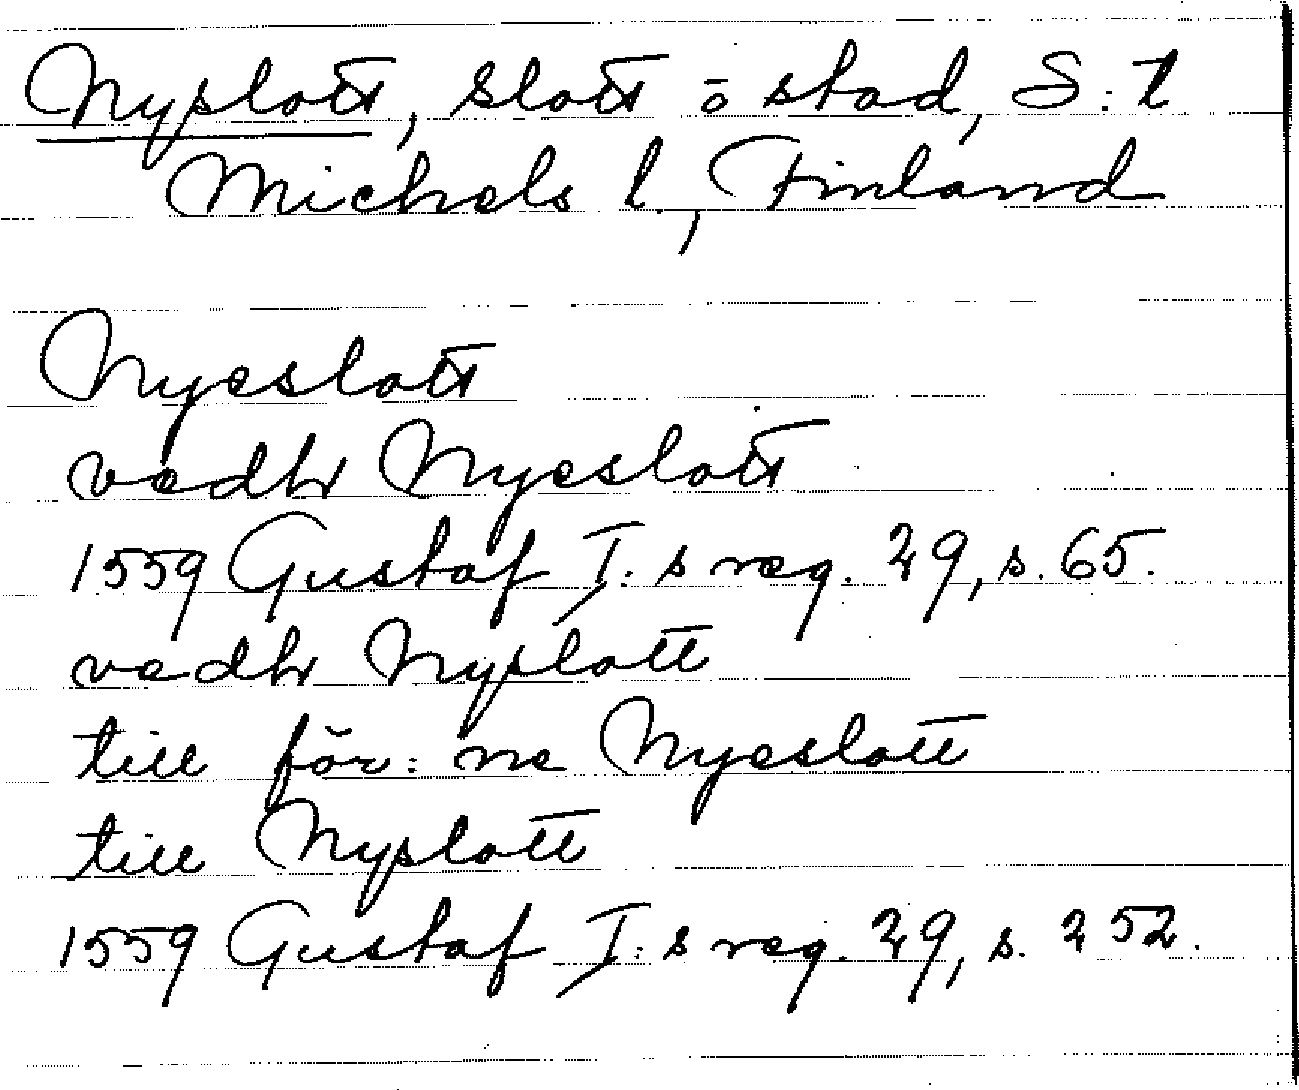 Nyslott, slott o stad, S:t
Michels l., Finland
Nyeslott
vedhr Nyeslott
1559 Gustaf I:s reg. 29, s. 65.
vedhr Nyslott
till för:ne Nyeslott
till Nyslott
1559 Gustaf I:s reg. 29, s. 252.